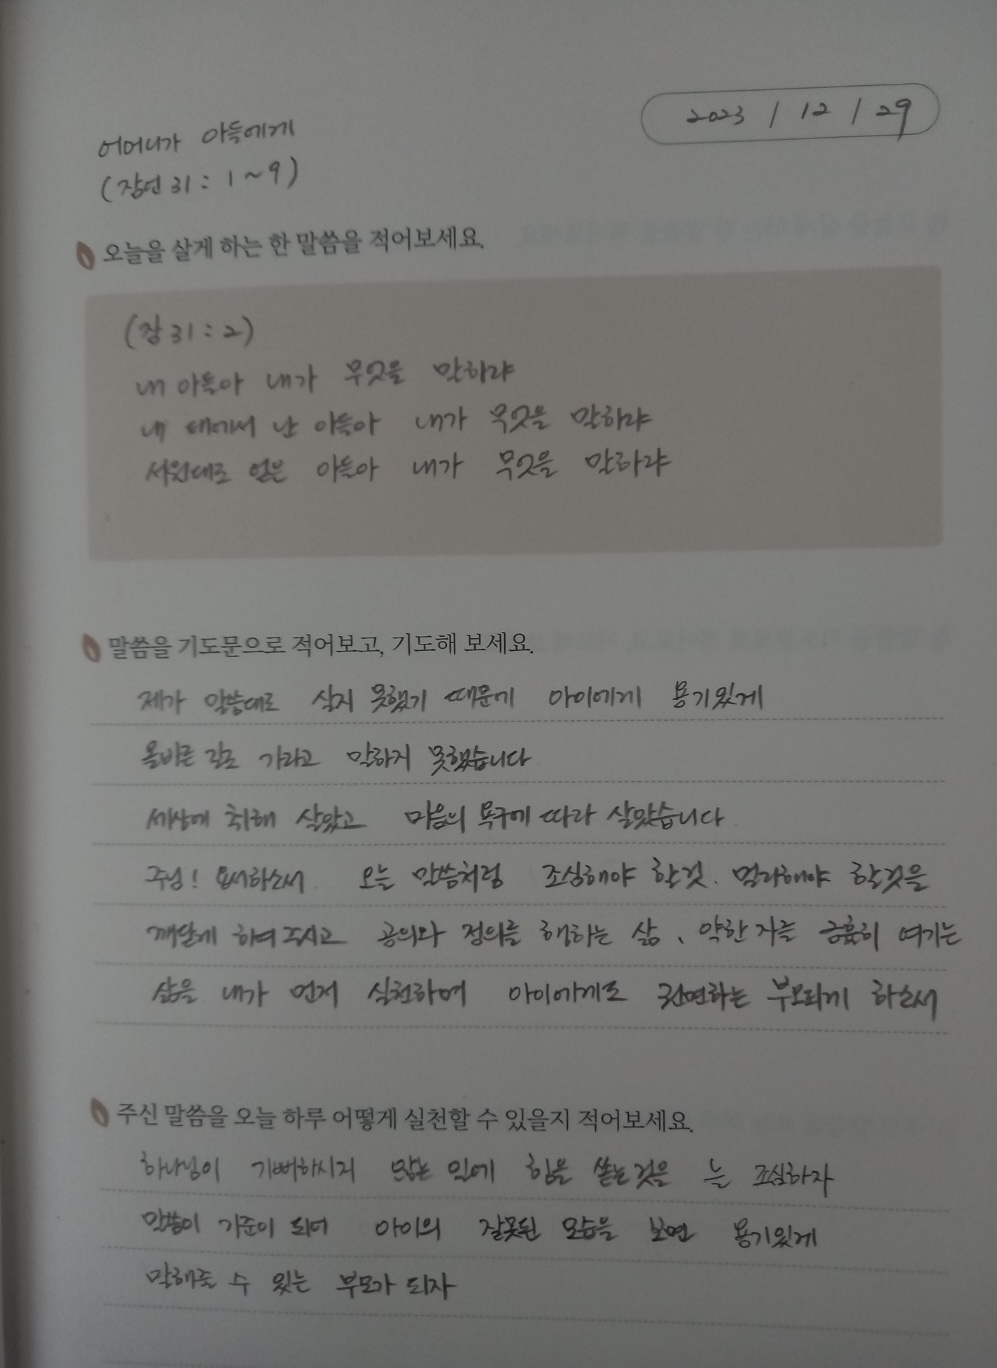 2023 / 12 / 29
어머니가 아들에게
(잠언 31 : 1 ~ 9)
오늘을 살게 하는 한 말씀을 적어보세요.
(잠 31 : 2)
내 아들아 내가 무엇을 말하랴
내 태에서 난 아들아 내가 무엇을 말하랴
서원대로 얻은 아들아 내가 무엇을 말하랴
말씀을 기도문으로 적어보고, 기도해 보세요.
제가 말씀대로 살지 못했기 때문에 아이에게 용기있게
올바른 길로 가라고 말하지 못했습니다
세상에 취해 살았고 마음의 욕구에 따라 살았습니다
주님! 용서하소서 오늘 말씀처럼 조심해야 할것. 멀리해야 할것을
깨닫게 하여 주시고 공의와 정의를 행하는 삶, 약한 자를 긍휼히 여기는
삶을 내가 먼저 실천하여 아이에게도 권면하는 부모되게 하소서
주신 말씀을 오늘 하루 어떻게 실천할 수 있을지 적어보세요.
하나님이 기뻐하시지 않는 일에 힘을 쏟는것을 늘 조심하자
말씀이 기준이 되어 아이의 잘못된 모습을 보면 용기있게
말해줄 수 있는 부모가 되자